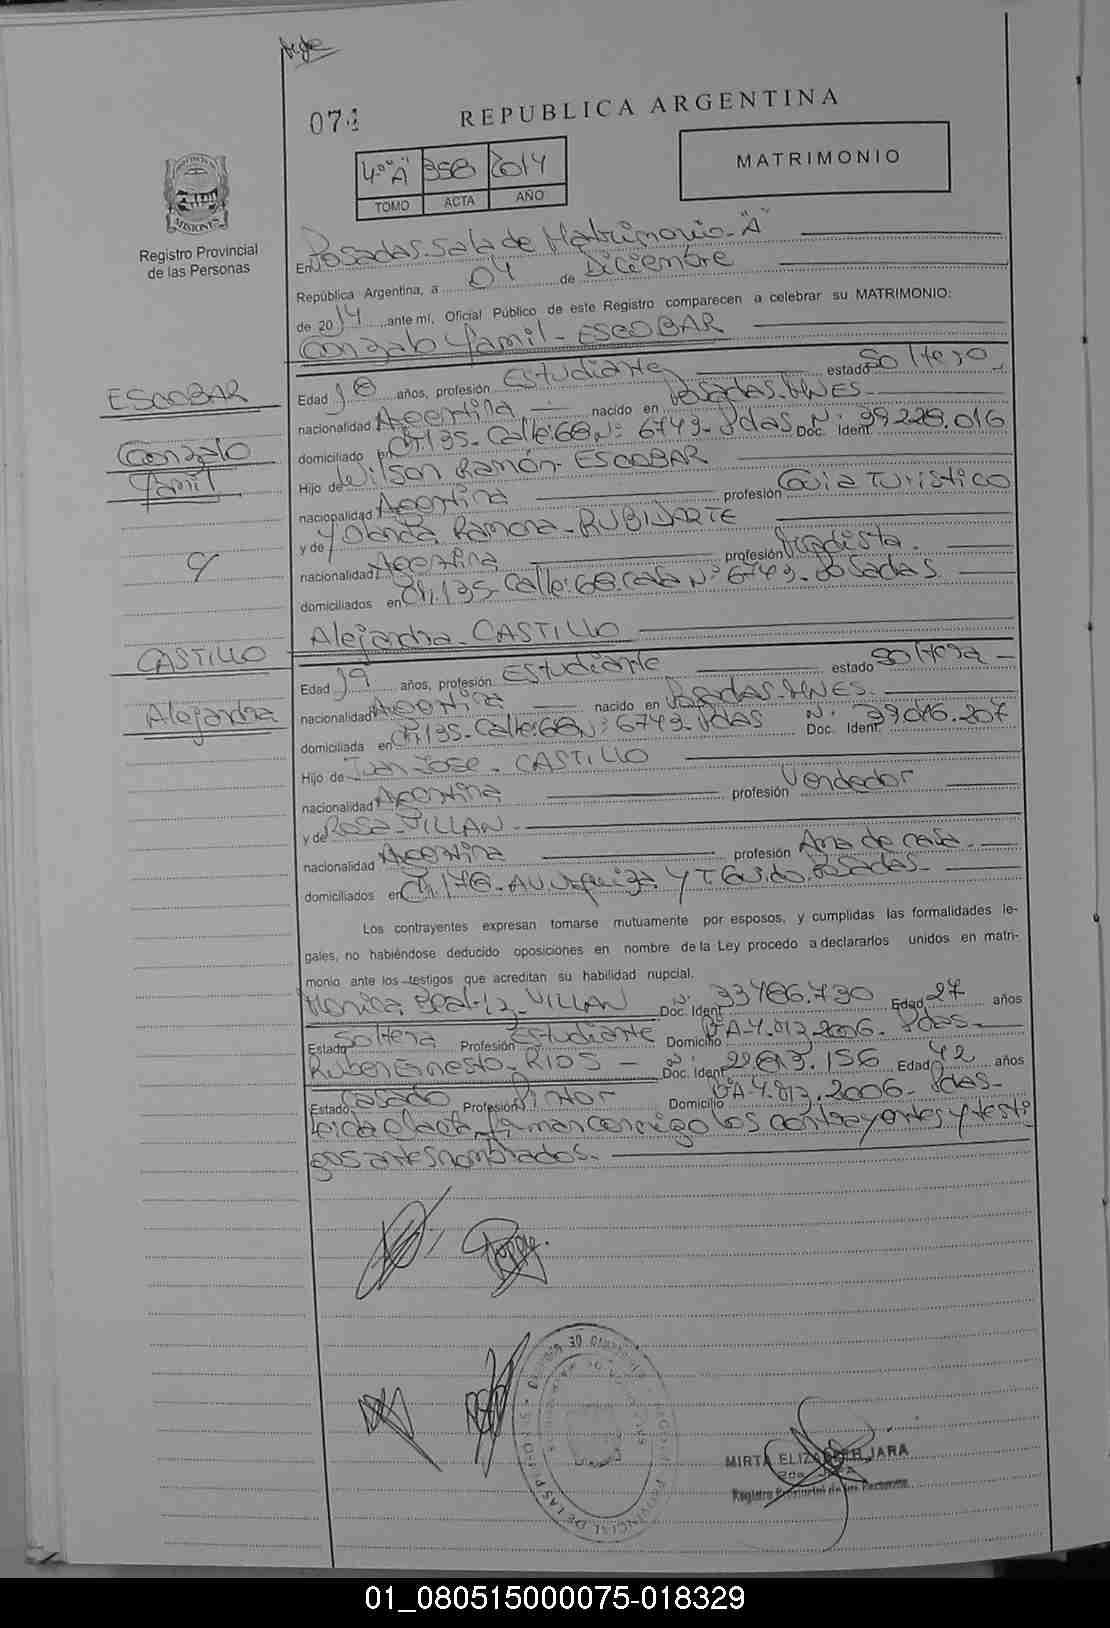 074
REPUBLICA ARGENTINA
4º "A" 358 2014
TOMO ACTA AÑO
MATRIMONIO
MISIONES
Registro Provincial
de las Personas
En Posadas. Sala de Matrimonio. "A"
República Argentina, a 04 de Diciembre
de 2014 ante mí, Oficial Público de este Registro comparecen a celebrar su MATRIMONIO:
Gonzalo Yamil - ESCOBAR
ESCOBAR
Gonzalo
Yamil
Edad 18 años, profesión Estudiante estado Soltero
nacionalidad Argentina nacido en Posadas. MNES.
domiciliado en Ch. 135. Calle: 68 N: 6749. Pdas Doc. Ident. N: 39.228.016
Hijo de Wilson Ramón - ESCOBAR
nacionalidad Argentina profesión Guia Turistico
y de Yolanda Ramona - RUBIDARTE
nacionalidad Argentina profesión Modista.
domiciliados en Ch. 135. Calle: 68. Casa N: 6749. Posadas
Alejandra - CASTILLO
y
CASTILLO
Alejandra
Edad 19 años, profesión Estudiante estado Soltera
nacionalidad Argentina nacido en Posadas. MNES.
domiciliada en Ch. 135. Calle: 68 N: 6749. Pdas Doc. Ident. N: 39.016.207
Hijo de Juan Jose - CASTILLO
nacionalidad Argentina profesión Vendedor
y de Rosa - VILLAN
nacionalidad Argentina profesión Ama de casa.
domiciliados en Ch. 176. Av. Urquiza Y T Guido. Posadas.
Los contrayentes expresan tomarse mutuamente por esposos, y cumplidas las formalidades le-
gales, no habiéndose deducido oposiciones en nombre de la Ley procedo a declararlos unidos en matri-
monio ante los testigos que acreditan su habilidad nupcial.
Monica Beatriz - VILLAN Doc. Ident. N: 33486.730 Edad 27 años
Estado Soltera Profesión Estudiante Domicilio Bº A-4. 2006. Pdas.
Ruben Ernesto - RIOS Doc. Ident. N: 22.813.156 Edad 42 años
Estado Casado Profesión Pintor Domicilio Bº A-4. 2006. Pdas.
Leida el acta, firman conmigo los contrayentes y testi
gos antes nombrados.
MIRTA ELIZABETH JARA
Registro Provincial de las Personas
01_080515000075-018329